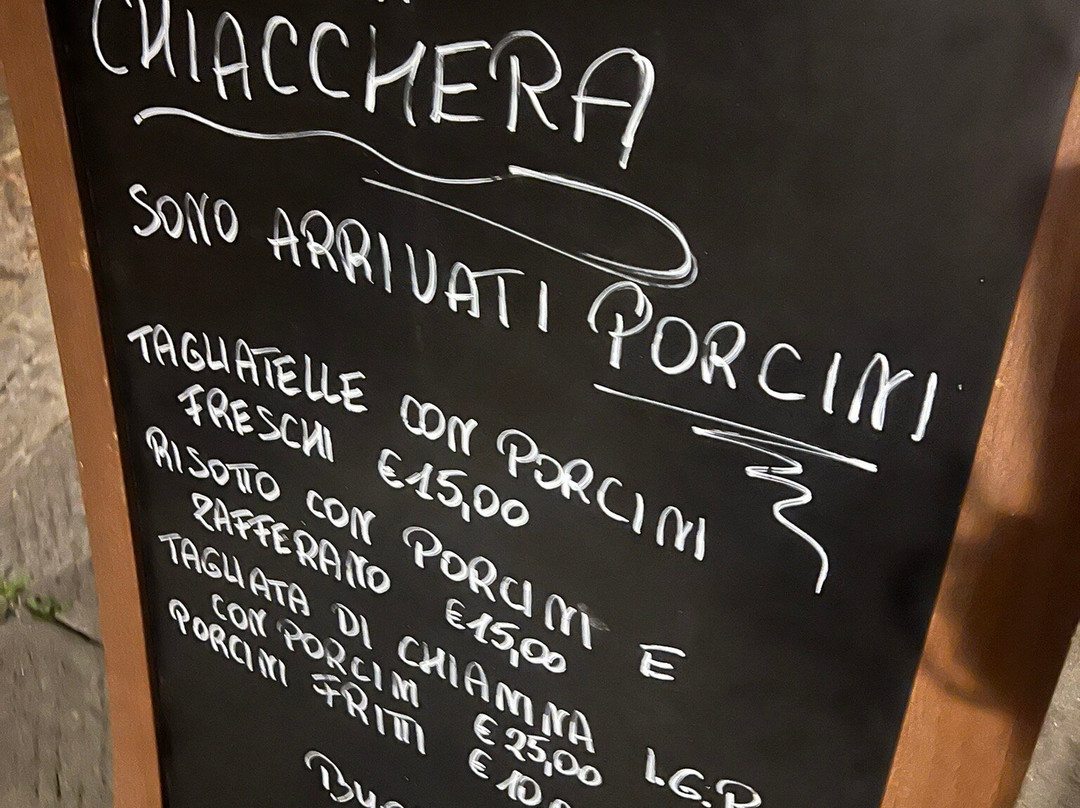 CHIACCHERA
SONO ARRIVATI PORCINI
TAGLIATELLE CON PORCINI
FRESCHI €15,00
RISOTTO CON PORCINI E
ZAFFERANO €15,00
TAGLIATA DI CHIANINA I.G.P
CON PORCINI €25,00
PORCINI FRITTI €10,0